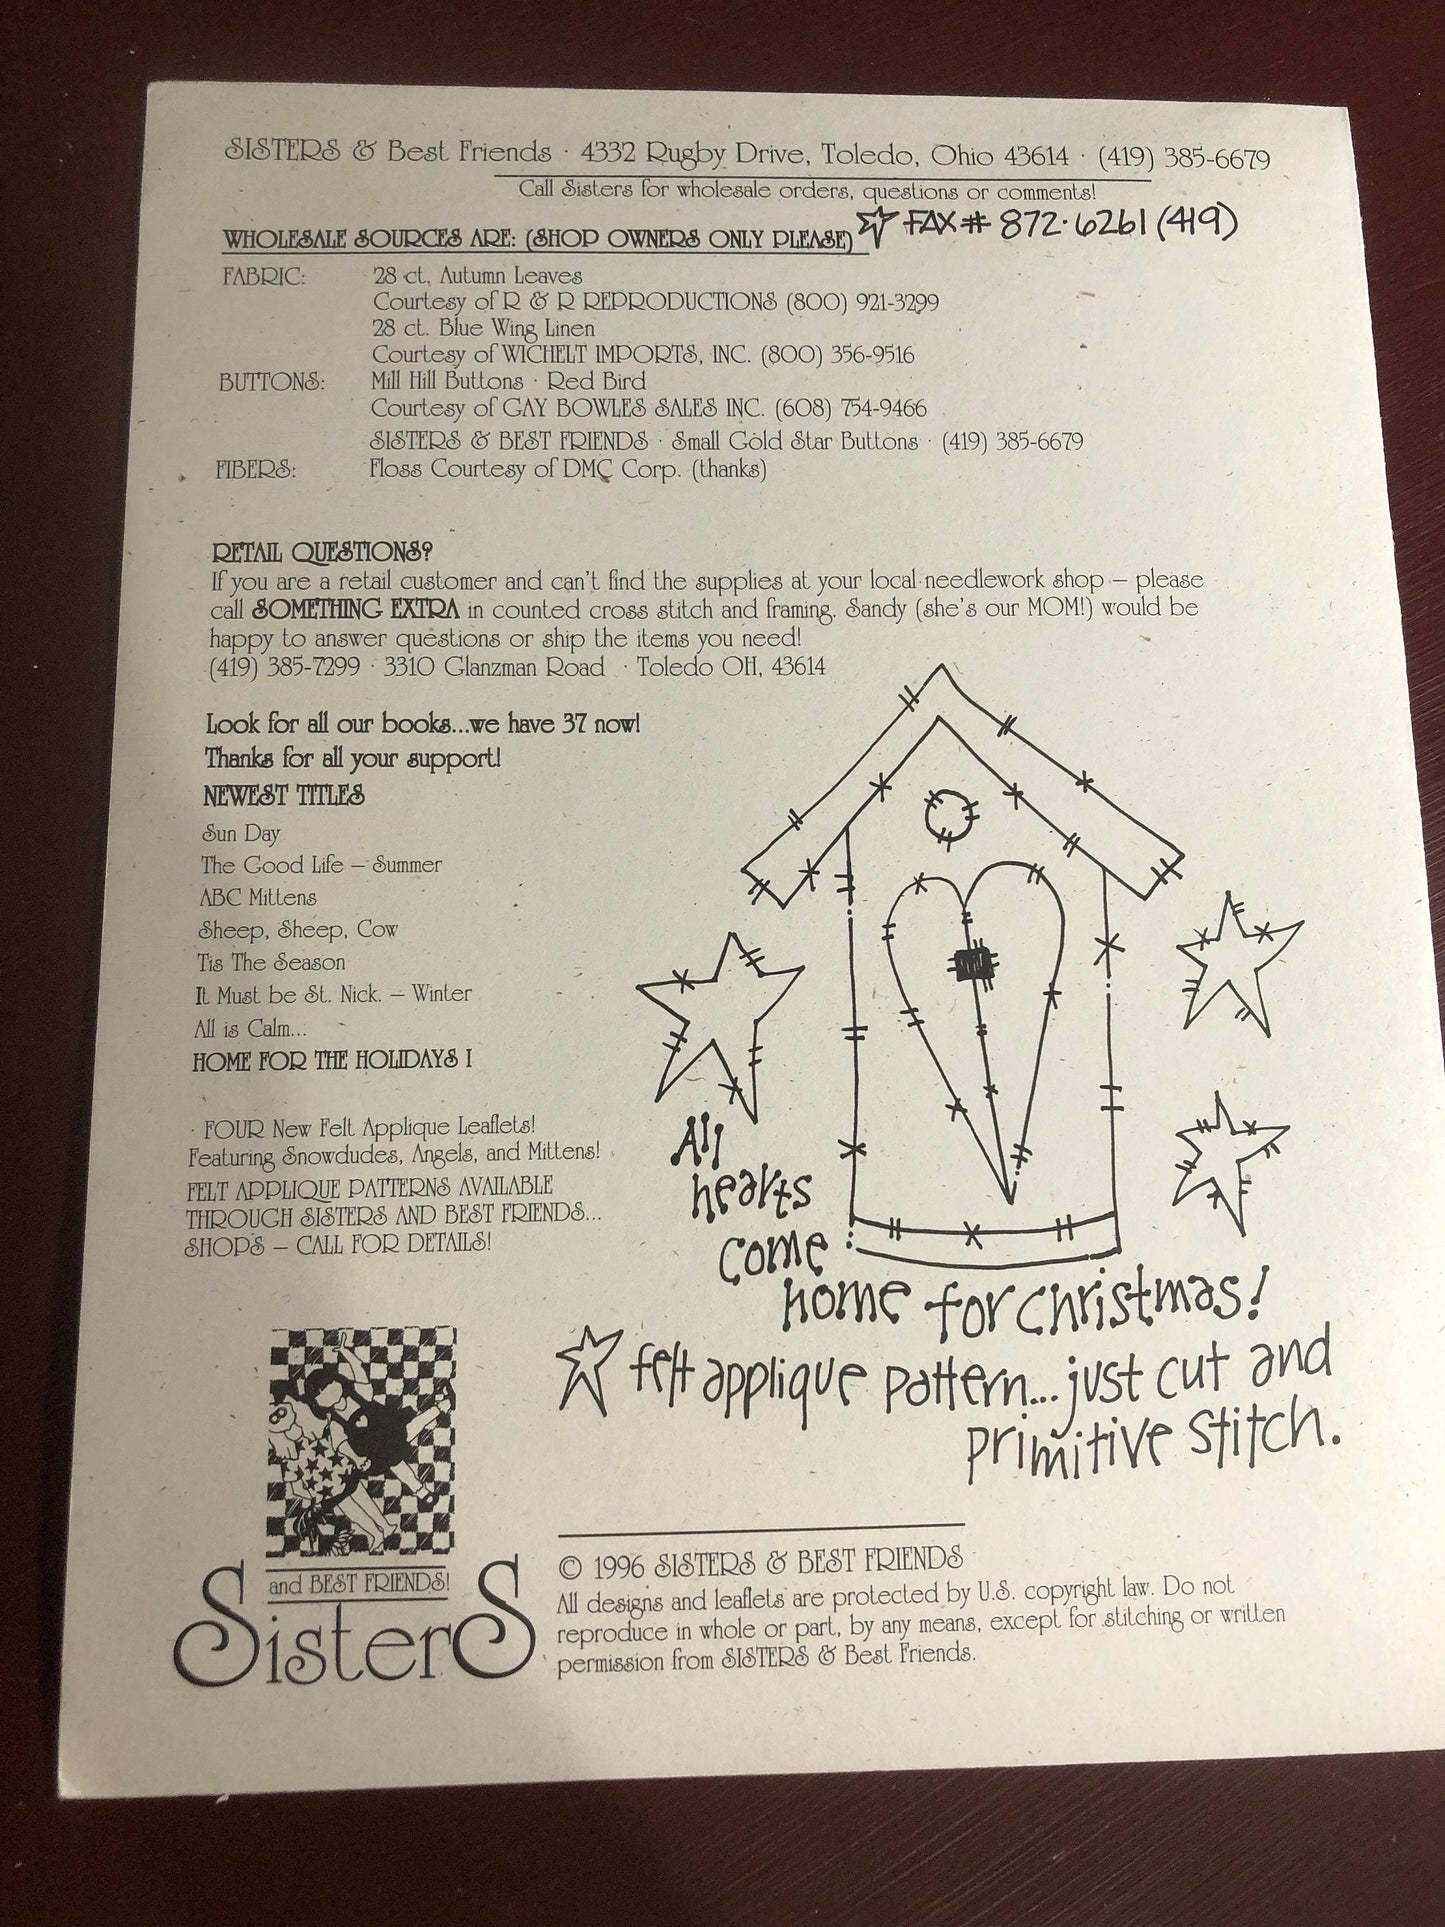 SISTERS & Best Friends · 4332 Rugby Drive, Toledo, Ohio 43614 · (419) 385-6679
Call Sisters for wholesale orders, questions or comments!
☆ FAX # 872·6261 (419)
WHOLESALE SOURCES ARE: (SHOP OWNERS ONLY PLEASE)
FABRIC: 28 ct. Autumn Leaves
Courtesy of R & R REPRODUCTIONS (800) 921-3299
28 ct. Blue Wing Linen
Courtesy of WICHELT IMPORTS, INC. (800) 356-9516
BUTTONS: Mill Hill Buttons · Red Bird
Courtesy of GAY BOWLES SALES INC. (608) 754-9466
SISTERS & BEST FRIENDS · Small Gold Star Buttons · (419) 385-6679
FIBERS: Floss Courtesy of DMC Corp. (thanks)
RETAIL QUESTIONS?
If you are a retail customer and can't find the supplies at your local needlework shop – please
call SOMETHING EXTRA in counted cross stitch and framing. Sandy (she's our MOM!) would be
happy to answer questions or ship the items you need!
(419) 385-7299 · 3310 Glanzman Road · Toledo OH, 43614
Look for all our books...we have 37 now!
Thanks for all your support!
NEWEST TITLES
Sun Day
The Good Life – Summer
ABC Mittens
Sheep, Sheep, Cow
Tis The Season
It Must be St. Nick. – Winter
All is Calm...
HOME FOR THE HOLIDAYS I
· FOUR New Felt Applique Leaflets!
Featuring Snowdudes, Angels, and Mittens!
FELT APPLIQUE PATTERNS AVAILABLE
THROUGH SISTERS AND BEST FRIENDS...
SHOP'S – CALL FOR DETAILS!
All
hearts
come
home for christmas!
☆ felt applique pattern... just cut and
primitive stitch.
and BEST FRIENDS!
SisterS
© 1996 SISTERS & BEST FRIENDS
All designs and leaflets are protected by U.S. copyright law. Do not
reproduce in whole or part, by any means, except for stitching or written
permission from SISTERS & Best Friends.